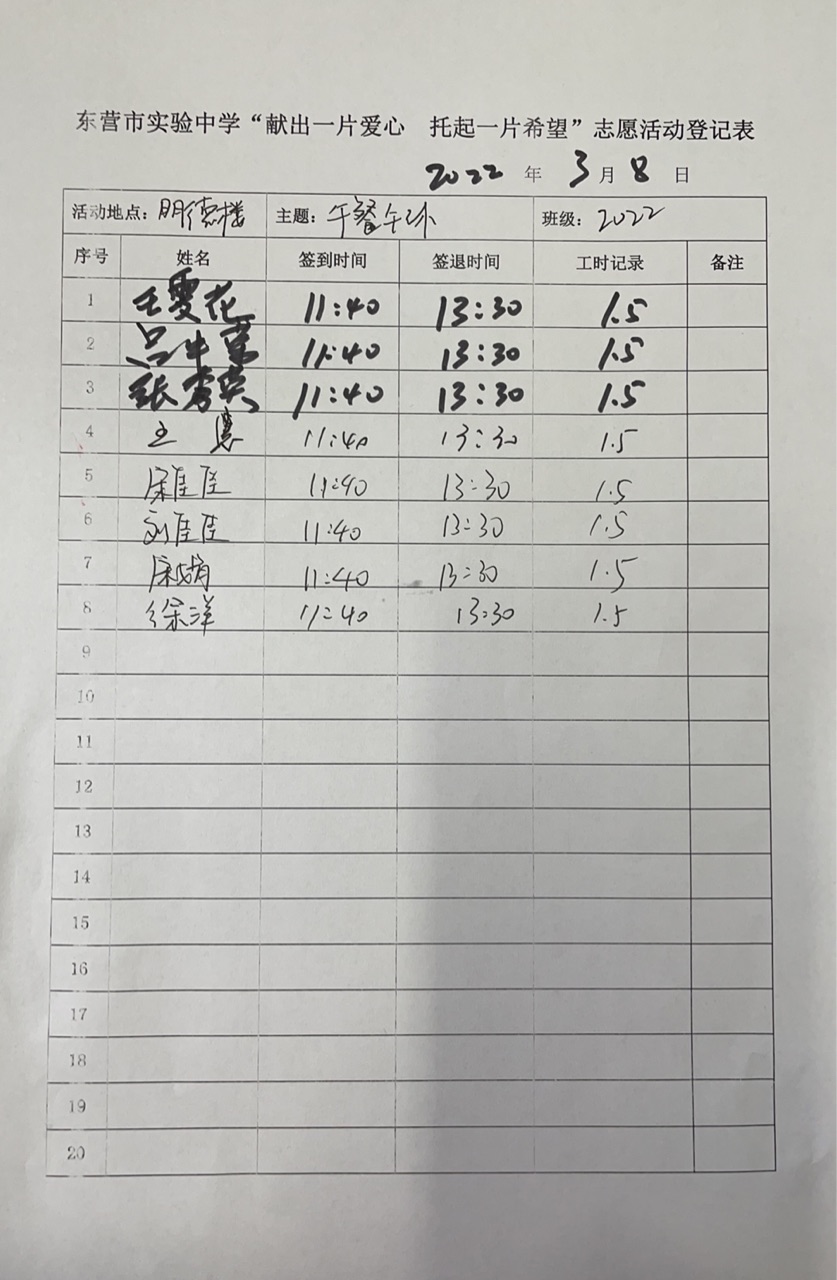 东营市实验中学“献出一片爱心 托起一片希望”志愿活动登记表
2022 年 3 月 8 日
活动地点：明德楼 主题：午餐午休 班级：2022
序号 姓名 签到时间 签退时间 工时记录 备注
1 王雯花 11:40 13:30 1.5
2 11:40 13:30 1.5
3 张秀英 11:40 13:30 1.5
4 王慧 11:40 13:30 1.5
5 宋佳佳 11:40 13:30 1.5
6 刘佳佳 11:40 13:30 1.5
7 11:40 13:30 1.5
8 徐洋 11:40 13:30 1.5
9
10
11
12
13
14
15
16
17
18
19
20